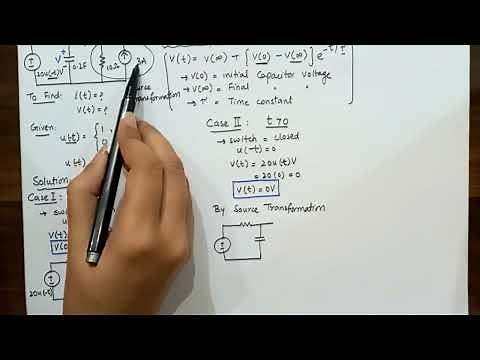 20u(-t)V
V
0.2F
10Ω
3A
To Find: i(t) = ?
V(t) = ?
Given:
u(-t) = { 1,
0
u(t)
Solution
Case I:
→ s
V(t)
V(0
20u(-t)
Source
Transformation
V(t) = V(∞) + [V(0) - V(∞)] e^-t/τ
→ V(0) = initial Capacitor Voltage
→ V(∞) = Final " "
→ τ = Time constant
Case II : t>0
→ switch = closed
u(-t) = 0
V(t) = 20u(t)V
= 20(0) = 0
V(t) = 0V
By Source Transformation